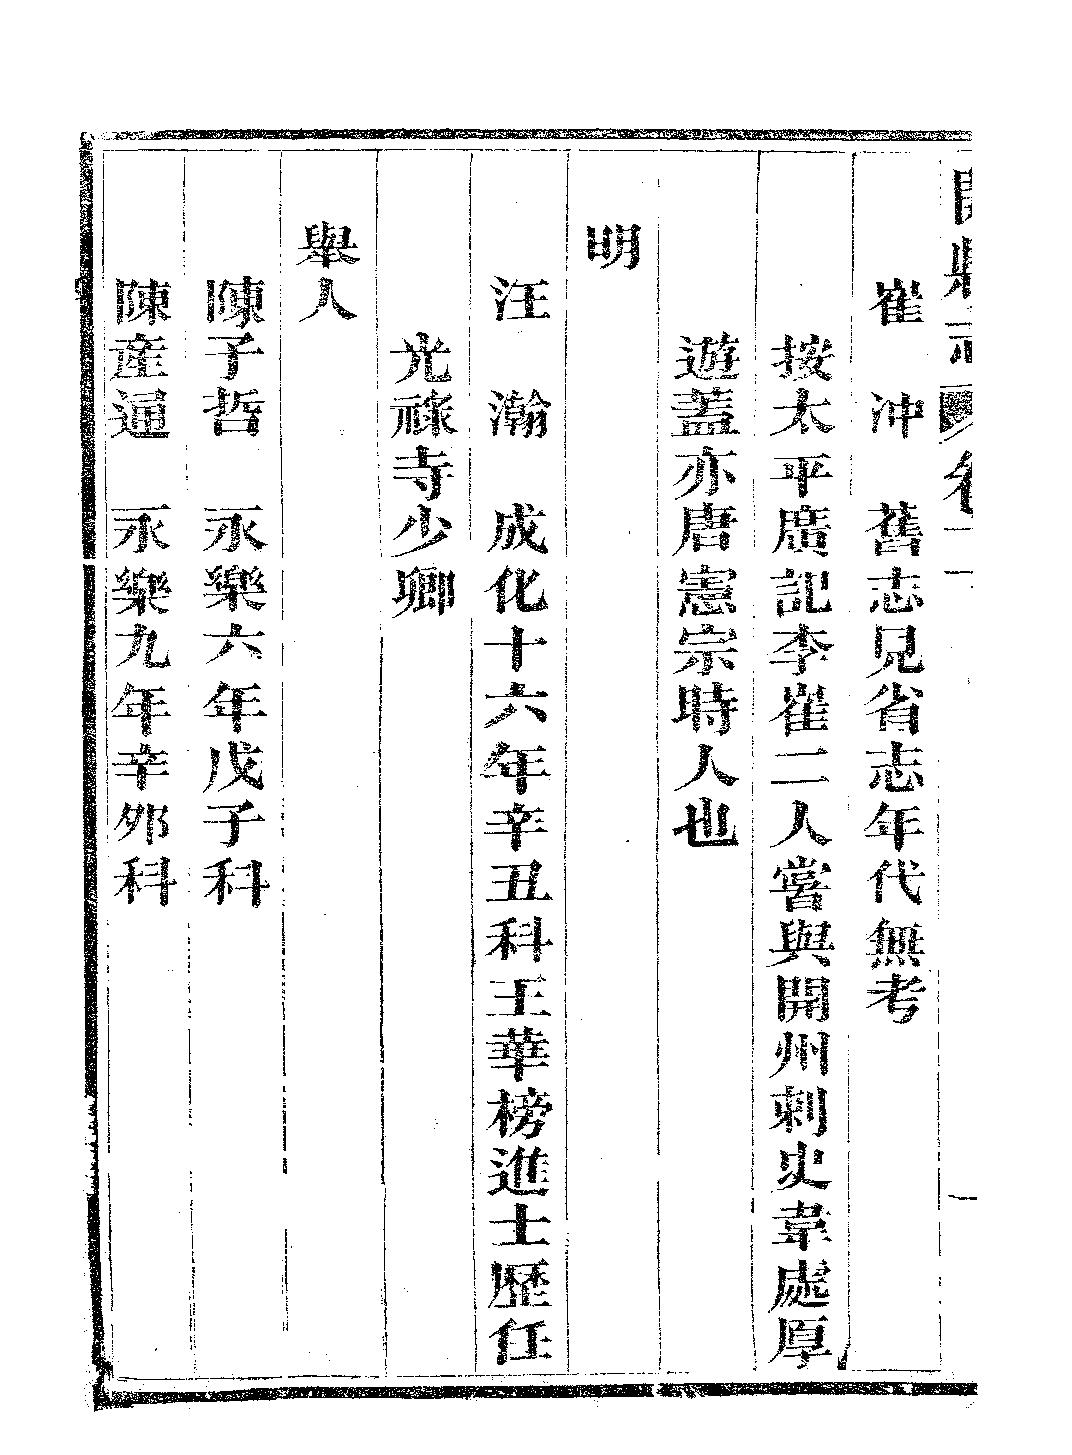 開縣志 卷二十一
崔 冲 舊志見省志年代無考
按太平廣記李崔二人嘗與開州刺史韋處厚
遊蓋亦唐憲宗時人也
明
汪 瀚 成化十六年辛丑科王華榜進士歷任
光祿寺少卿
舉人
陳子哲 永樂六年戊子科
陳產逼 永樂九年辛夘科